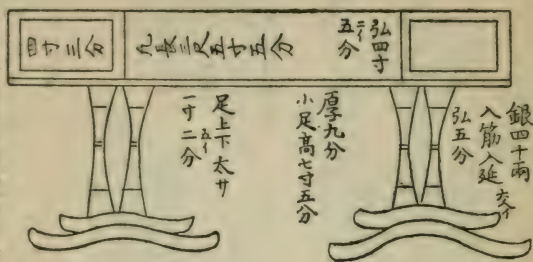 弘四寸
二イ
五分
九長三尺五寸五分
四寸三分
銀四十兩
入筋入延
六イ
弘五分
厚九分
小足高七寸五分
足上下太サ
五イ
一寸二分